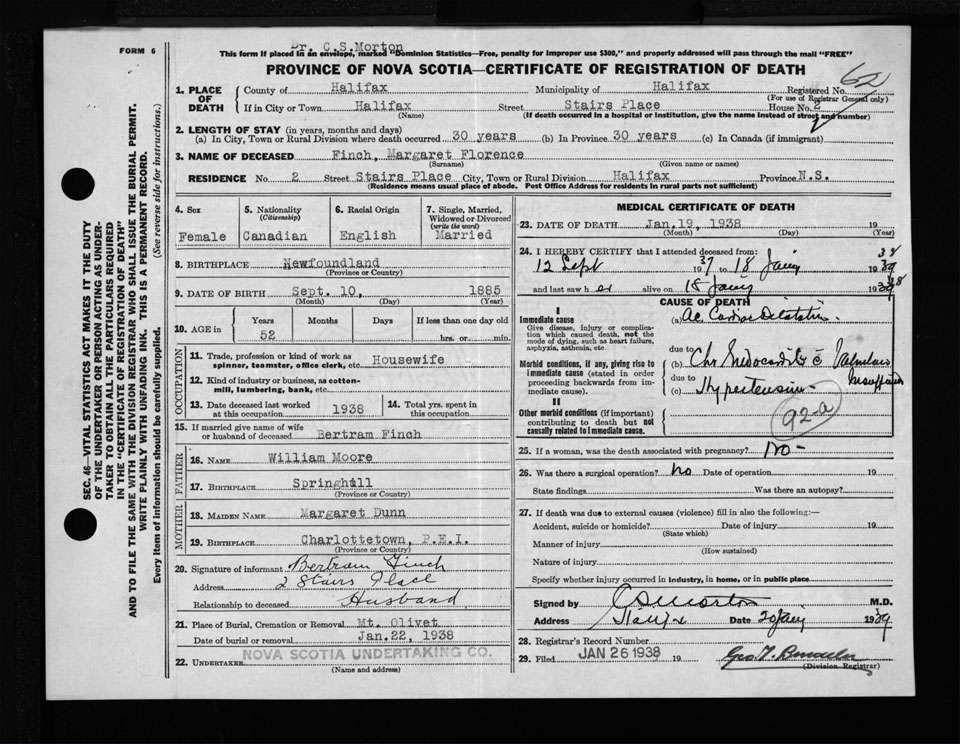 FORM 6
Dr. C.S.Morton
This form if placed in an envelope, marked "Dominion Statistics—Free, penalty for improper use $300," and properly addressed will pass through the mail "FREE"
PROVINCE OF NOVA SCOTIA—CERTIFICATE OF REGISTRATION OF DEATH
62
1. PLACE OF DEATH County of Halifax Municipality of Halifax Registered No.
(For use of Registrar General only)
If in City or Town Halifax Street Stairs Place House No. 2
(Name) (If death occurred in a hospital or institution, give the name instead of street and number)
2. LENGTH OF STAY (in years, months and days)
(a) In City, Town or Rural Division where death occurred 30 years (b) In Province 30 years (c) In Canada (if immigrant)
3. NAME OF DECEASED Finch, Margaret Florence
(Surname) (Given name or names)
RESIDENCE No. 2 Street Stairs Place City, Town or Rural Division Halifax Province N.S.
(Residence means usual place of abode. Post Office Address for residents in rural parts not sufficient)
SEC. 46—VITAL STATISTICS ACT MAKES IT THE DUTY
OF THE UNDERTAKER OR PERSON ACTING AS UNDER-
TAKER TO OBTAIN ALL THE PARTICULARS REQUIRED
IN THE "CERTIFICATE OF REGISTRATION OF DEATH"
AND TO FILE THE SAME WITH THE DIVISION REGISTRAR WHO SHALL ISSUE THE BURIAL PERMIT.
WRITE PLAINLY WITH UNFADING INK. THIS IS A PERMANENT RECORD.
Every item of information should be carefully supplied. (See reverse side for instructions.)
4. Sex 5. Nationality (Citizenship) 6. Racial Origin 7. Single, Married, Widowed or Divorced (write the word)
Female Canadian English Married
8. BIRTHPLACE Newfoundland
(Province or Country)
9. DATE OF BIRTH Sept. 10, 1885
(Month) (Day) (Year)
10. AGE in Years Months Days If less than one day old
52 hrs. or min.
OCCUPATION
11. Trade, profession or kind of work as Housewife
spinner, teamster, office clerk, etc.
12. Kind of industry or business, as cotton-
mill, lumbering, bank, etc.
13. Date deceased last worked at this occupation 1938 14. Total yrs. spent in this occupation
15. If married give name of wife
or husband of deceased Bertram Finch
FATHER
16. NAME William Moore
17. BIRTHPLACE Springhill
(Province or Country)
MOTHER
18. MAIDEN NAME Margaret Dunn
19. BIRTHPLACE Charlottetown, P.E.I.
(Province or Country)
20. Signature of informant Bertram Finch
Address 2 Stairs Place
Relationship to deceased Husband
21. Place of Burial, Cremation or Removal Mt. Olivet
Date of burial or removal Jan.22, 1938
22. UNDERTAKER NOVA SCOTIA UNDERTAKING CO.
(Name and address)
MEDICAL CERTIFICATE OF DEATH
23. DATE OF DEATH Jan.19, 1938 19
(Month) (Day) (Year)
24. I HEREBY CERTIFY that I attended deceased from:
12 Sept 1937 to 18 Jany 1939 38
and last saw h er alive on 18 Jany 1939 38
CAUSE OF DEATH
I
Immediate cause (a) Ac. Cardiac Dilatation
Give disease, injury or complica-
tion which caused death, not the
mode of dying, such as heart failure,
asphyxia, asthenia, etc.
due to
(b) Chr Endocarditis c Valvular Insufficiency
Morbid conditions, if any, giving rise to
immediate cause (stated in order
proceeding backwards from im-
mediate cause).
due to
(c) Hypertension
92-a
II
Other morbid conditions (if important)
contributing to death but not
causally related to immediate cause.
25. If a woman, was the death associated with pregnancy? No
26. Was there a surgical operation? no Date of operation 19
State findings Was there an autopsy?
27. If death was due to external causes (violence) fill in also the following:—
Accident, suicide or homicide? Date of injury 19
(State which)
Manner of injury
(How sustained)
Nature of injury
Specify whether injury occurred in industry, in home, or in public place
Signed by C S Morton M.D.
Address Halifax Date 20 Jany 1939
28. Registrar's Record Number
29. Filed JAN 26 1938 19
(Division Registrar)